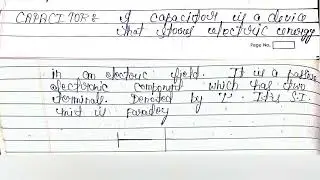 CAPACITOR : A capacitor is a device
that stores electric energy
Page No.
in an electric field. It is a passive
electronic component which has two
terminals. Denoted by 'L'. It's S.I.
unit is faraday